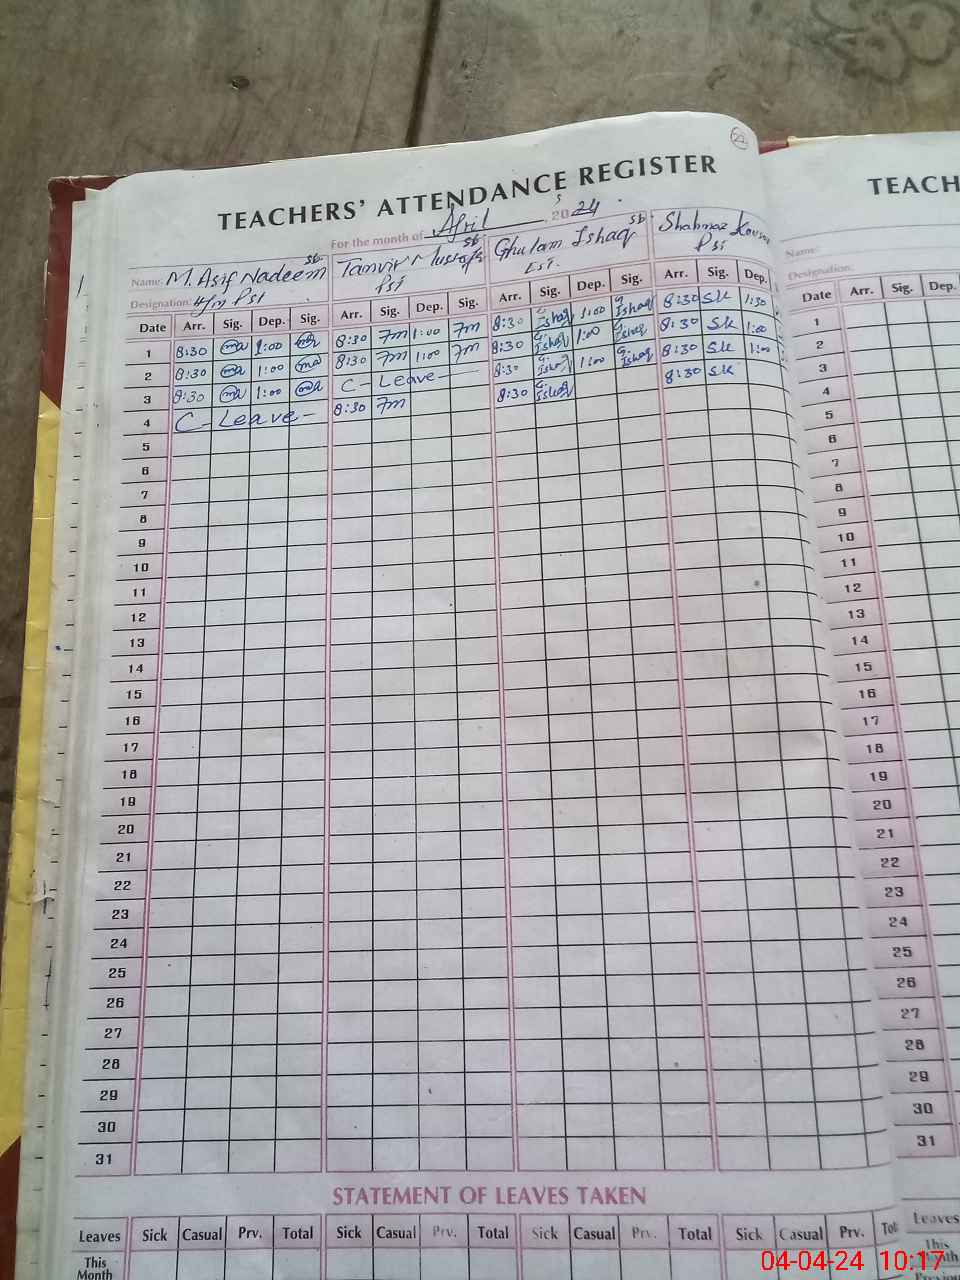 52
TEACHERS' ATTENDANCE REGISTER
For the month of April 2024
Name: M. Asif Nadeem sb Tanvir Mustafa sb Ghulam Ishaq sb Shahnaz Kousar
Designation: H/m PST PST EST PST
Date Arr. Sig. Dep. Sig. Arr. Sig. Dep. Sig. Arr. Sig. Dep. Sig. Arr. Sig. Dep.
1 8:30 1:00 8:30 Tm 1:00 Tm 8:30 G. Ishaq 1:00 G. Ishaq 8:30 SK 1:30
2 8:30 1:00 8:30 Tm 1:00 Tm 8:30 G. Ishaq 1:00 G. Ishaq 8:30 SK 1:00
3 8:30 1:00 C-Leave- 8:30 G. Ishaq 1:00 G. Ishaq 8:30 SK 1:00
4 C-Leave- 8:30 Tm 8:30 G. Ishaq 8:30 SK
5
6
7
8
9
10
11
12
13
14
15
16
17
18
19
20
21
22
23
24
25
26
27
28
29
30
31
STATEMENT OF LEAVES TAKEN
Leaves Sick Casual Prv. Total Sick Casual Prv. Total Sick Casual Prv. Total Sick Casual Prv. Tot
This
Month
TEACH
Name:
Designation:
Date Arr. Sig. Dep.
1
2
3
4
5
6
7
8
9
10
11
12
13
14
15
16
17
18
19
20
21
22
23
24
25
26
27
28
29
30
31
Leaves
This
Month
04-04-24 10:17